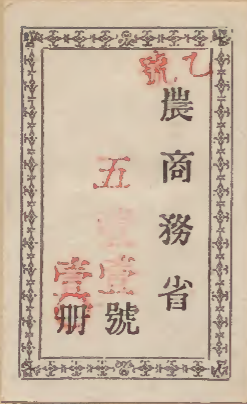 乙號
農商務省
五 壹號
壹冊